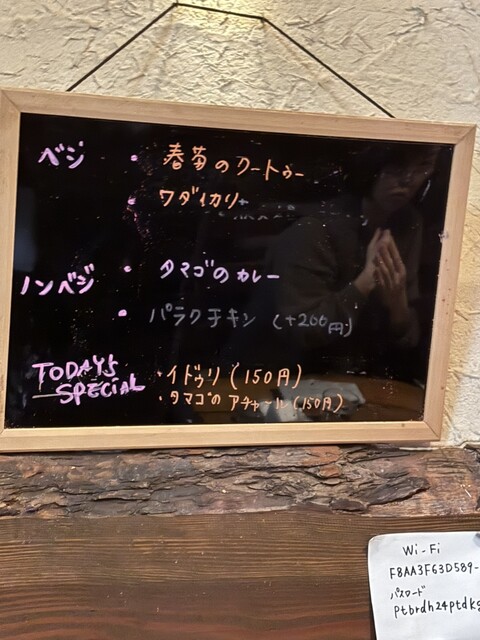 ベジ ・ 春菊のクートゥー
・ ワダイカリー
ノンベジ ・ タマゴのカレー
・ パラクチキン (+200円)
TODAYS SPECIAL ・イドゥリ (150円)
・タマゴのアチャール (150円)
Wi-Fi
F8AA3F63D589-
パスワード